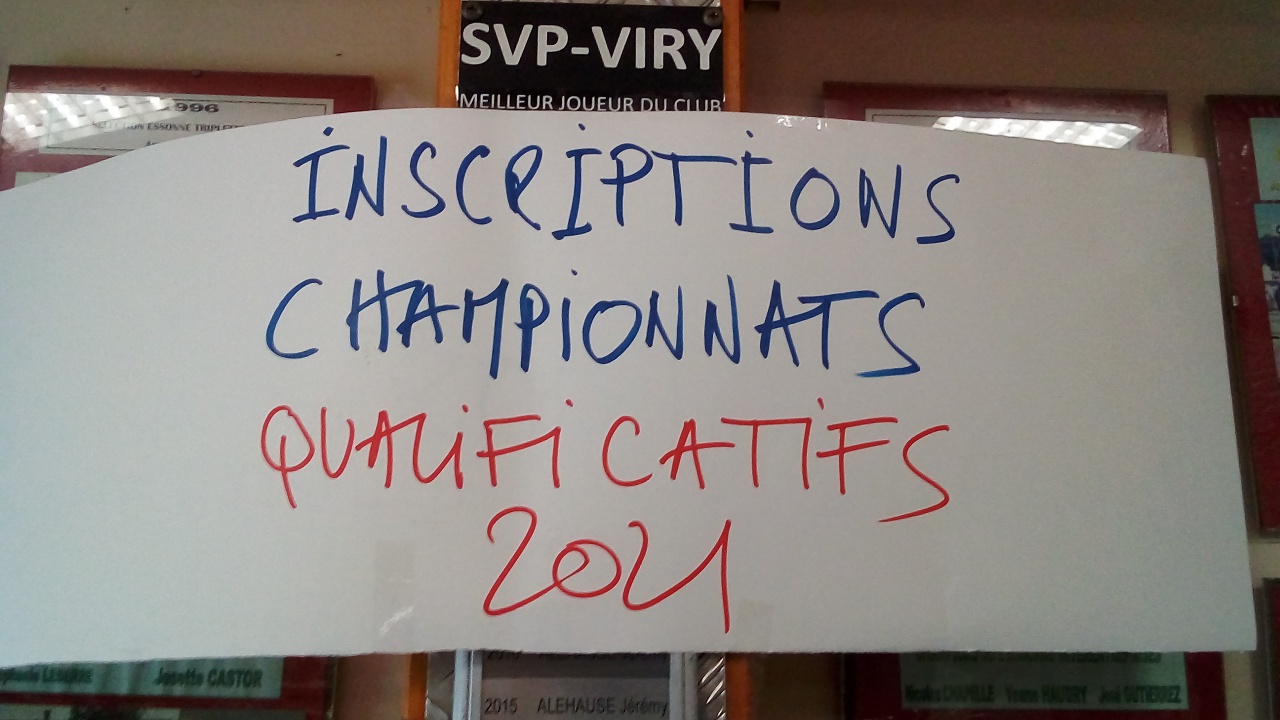 SVP-VIRY
MEILLEUR JOUEUR DU CLUB
1996
INSCRIPTIONS
CHAMPIONNATS
QUALIFICATIFS
2021
Josette CASTOR
2015 ALEHAUSE Jérémy
Nicolas CHAPELLE Yvonne HAUDRY José GUTIERREZ